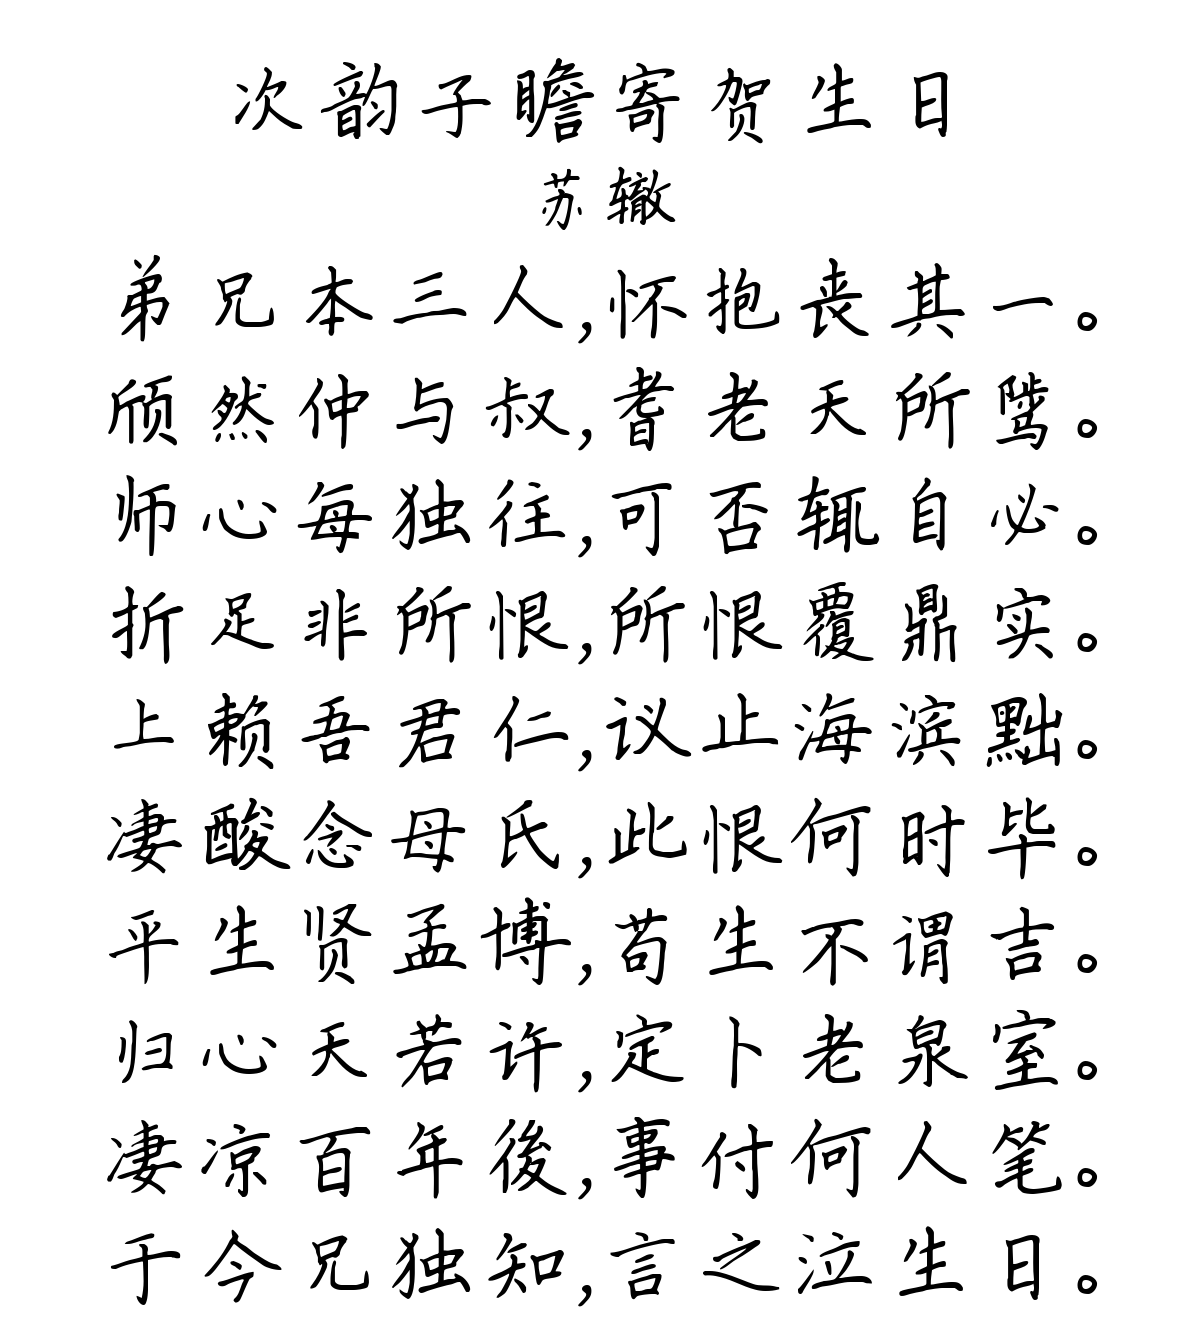 次韵子瞻寄贺生日
苏辙
弟兄本三人,怀抱丧其一。
颀然仲与叔,耆老天所骘。
师心每独往,可否辄自必。
折足非所恨,所恨覆鼎实。
上赖吾君仁,议止海滨黜。
凄酸念母氏,此恨何时毕。
平生贤孟博,苟生不谓吉。
归心天若许,定卜老泉室。
凄凉百年後,事付何人笔。
于今兄独知,言之泣生日。